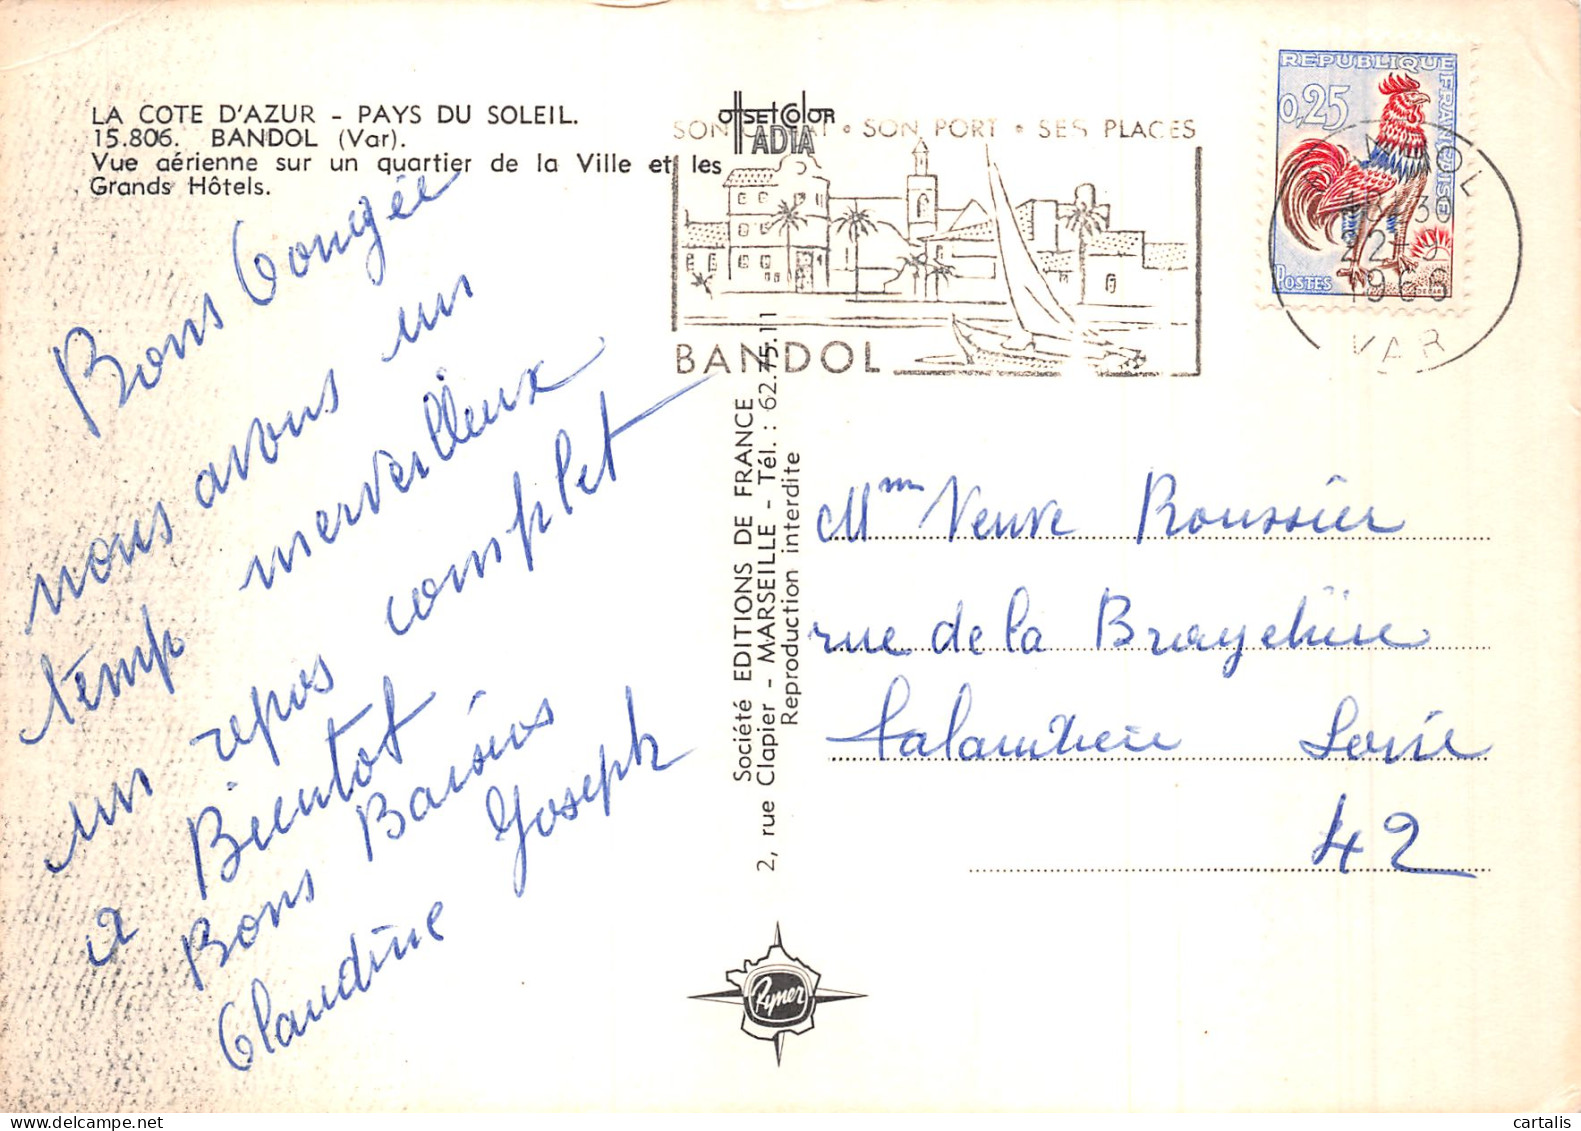 LA COTE D'AZUR - PAYS DU SOLEIL.
15.806. BANDOL (Var).
Vue aérienne sur un quartier de la Ville et les
Grands Hôtels.
offset color
ADIA
SON • SON PORT • SES PLAGES
BANDOL
REPUBLIQUE FRANÇAISE
0,25
POSTES
22-9
1966
VAR
Bons Congée
nous avons un
temp merveilleux
un repos complet
a Bientot
Bons Baisius
Claudine Joseph
Société EDITIONS DE FRANCE
2, rue Clapier - MARSEILLE - Tél. : 62.75.11
Reproduction interdite
Mme Veuve Roussier
rue de la
Loire
42
Rymer
cartalis